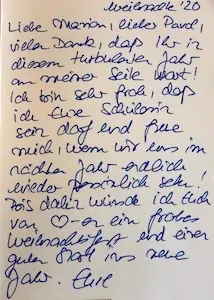 Weihnachten '20
Liebe Marion, lieber Pavol,
vielen Dank, daß Ihr in
diesem turbulenten Jahr
an meiner Seite wart!
Ich bin sehr froh, daß
ich Eure Schülerin
sein darf und freue
mich, wenn wir uns im
nächsten Jahr endlich
wieder persönlich sehn!
Bis dahin wünsche ich Euch
von ♡-en ein frohes
Weihnachtsfest und einen
guten Start ins neue
Jahr. Eure